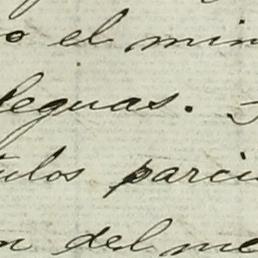 o el min
leguas.
tulos parci
n del me